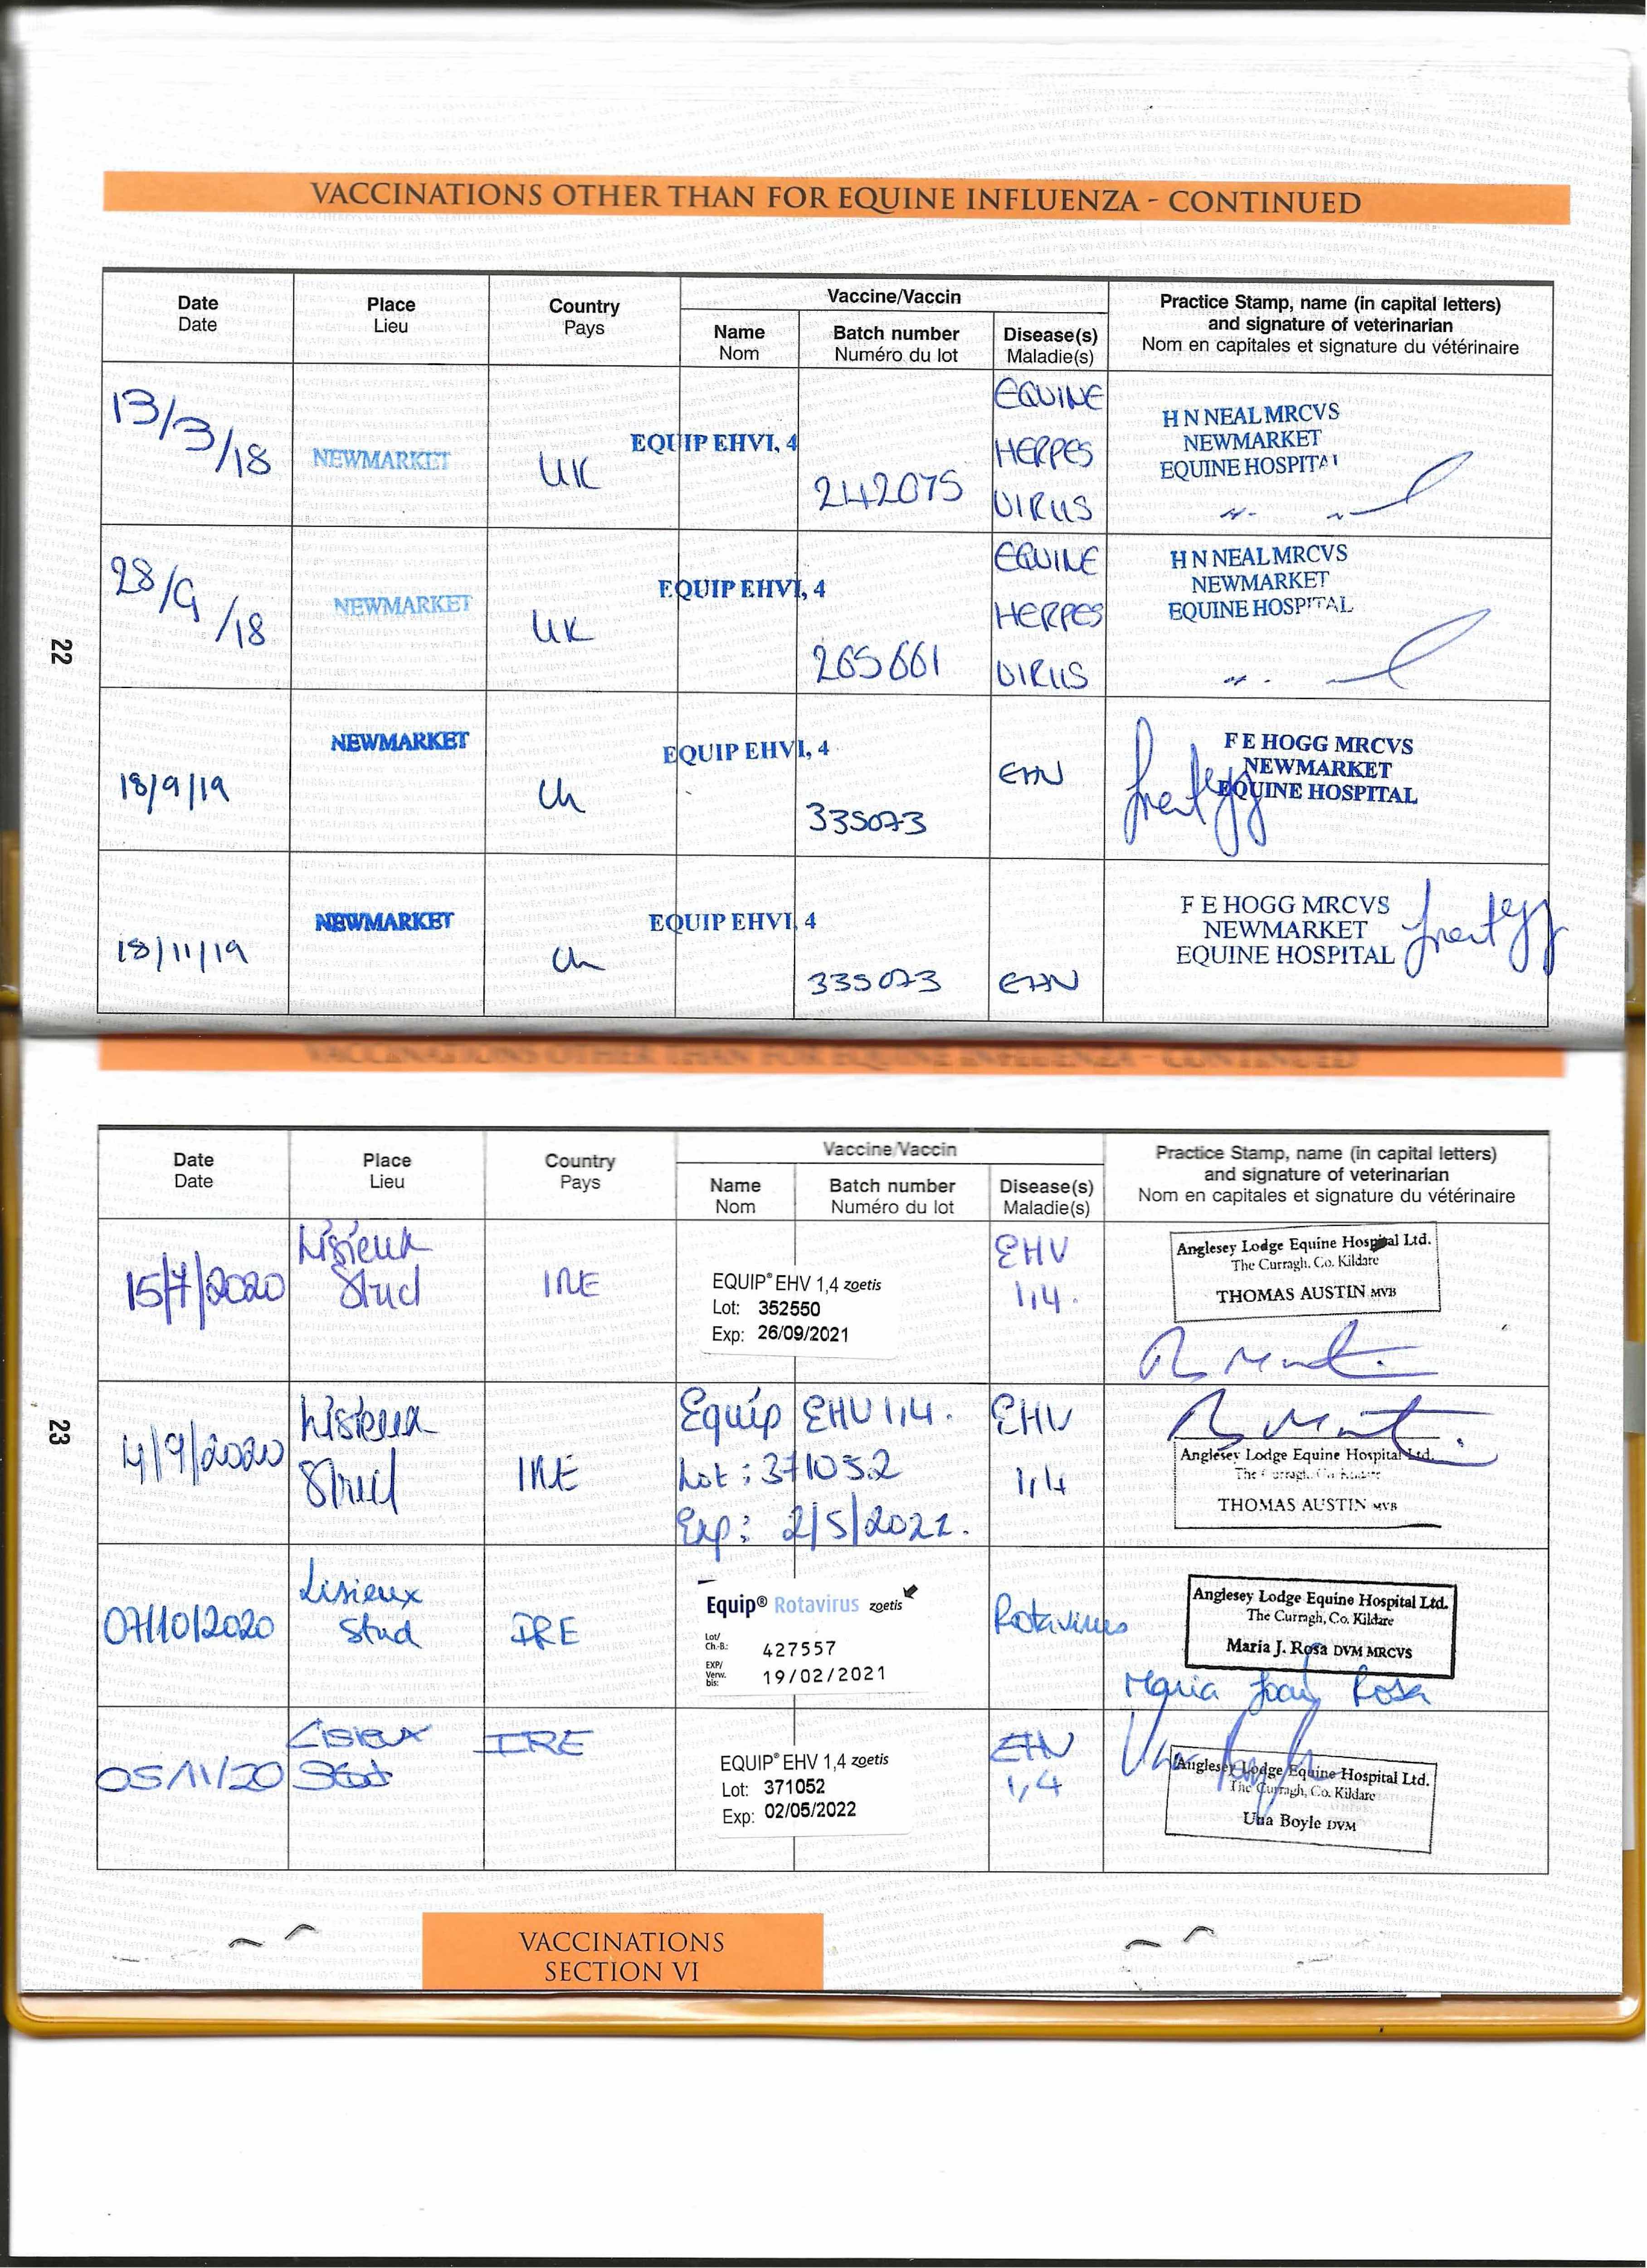 VACCINATIONS OTHER THAN FOR EQUINE INFLUENZA - CONTINUED
Date
Date
Place
Lieu
Country
Pays
Vaccine/Vaccin
Name
Nom
Batch number
Numéro du lot
Disease(s)
Maladie(s)
Practice Stamp, name (in capital letters)
and signature of veterinarian
Nom en capitales et signature du vétérinaire
13/3/18
NEWMARKET
UK
EQUIP EHVI, 4
242075
EQUINE
HERPES
VIRUS
H N NEAL MRCVS
NEWMARKET
EQUINE HOSPITAL
28/9/18
NEWMARKET
UK
EQUIP EHVI, 4
265661
EQUINE
HERPES
VIRUS
H N NEAL MRCVS
NEWMARKET
EQUINE HOSPITAL
22
18/9/19
NEWMARKET
UK
EQUIP EHVI, 4
335073
EHV
F E HOGG MRCVS
NEWMARKET
EQUINE HOSPITAL
18/11/19
NEWMARKET
UK
EQUIP EHVI, 4
335073
EHV
F E HOGG MRCVS
NEWMARKET
EQUINE HOSPITAL
VACCINATIONS OTHER THAN FOR EQUINE INFLUENZA - CONTINUED
Date
Date
Place
Lieu
Country
Pays
Vaccine/Vaccin
Name
Nom
Batch number
Numéro du lot
Disease(s)
Maladie(s)
Practice Stamp, name (in capital letters)
and signature of veterinarian
Nom en capitales et signature du vétérinaire
15/7/2020
Lisieux
Stud
IRE
EQUIP® EHV 1,4 zoetis
Lot: 352550
Exp: 26/09/2021
EHV
1,4.
Anglesey Lodge Equine Hospital Ltd.
The Curragh, Co. Kildare
THOMAS AUSTIN MVB
23
4/9/2020
Lisieux
Stud
IRE
Equip EHV 1,4.
Lot: 371052
Exp: 2/5/2022.
EHV
1,4
Anglesey Lodge Equine Hospital Ltd.
The Curragh, Co. Kildare
THOMAS AUSTIN MVB
07/10/2020
Lisieux
Stud
IRE
Equip® Rotavirus zoetis
Lot/
Ch.-B.: 427557
EXP/
Verw.
bis: 19/02/2021
Rotavirus
Anglesey Lodge Equine Hospital Ltd.
The Curragh, Co. Kildare
Maria J. Rosa DVM MRCVS
Maria João Rosa
05/11/20
Lisieux
Stud
IRE
EQUIP® EHV 1,4 zoetis
Lot: 371052
Exp: 02/05/2022
EHV
1,4
Anglesey Lodge Equine Hospital Ltd.
The Curragh, Co. Kildare
Una Boyle DVM
VACCINATIONS
SECTION VI